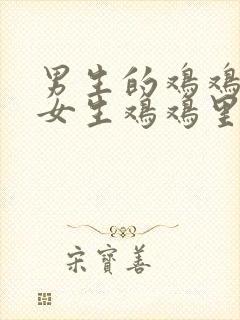 男生的鸡鸡
女生鸡鸡里
宋宝善